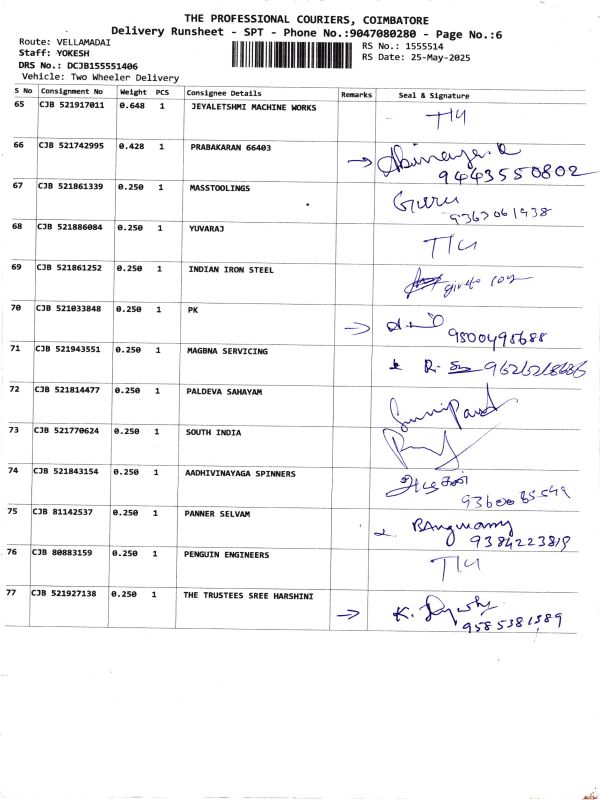 THE PROFESSIONAL COURIERS, COIMBATORE
Delivery Runsheet - SPT - Phone No.:9047080280 - Page No.:6
Route: VELLAMADAI
RS No.: 1555514
Staff: YOKESH
RS Date: 25-May-2025
DRS No.: DCJB155551406
Vehicle: Two Wheeler Delivery
S No Consignment No Weight PCS Consignee Details Remarks Seal & Signature
65 CJB 521917011 0.648 1 JEYALETSHMI MACHINE WORKS
66 CJB 521742995 0.428 1 PRABAKARAN 66403 → Abinaya.R
9443550802
67 CJB 521861339 0.250 1 MASSTOOLINGS Guru
9363061938
68 CJB 521886084 0.250 1 YUVARAJ
69 CJB 521861252 0.250 1 INDIAN IRON STEEL
70 CJB 521033848 0.250 1 PK →
9500495688
71 CJB 521943551 0.250 1 MAGBNA SERVICING
72 CJB 521814477 0.250 1 PALDEVA SAHAYAM
73 CJB 521770624 0.250 1 SOUTH INDIA
74 CJB 521843154 0.250 1 AADHIVINAYAGA SPINNERS
75 CJB 81142537 0.250 1 PANNER SELVAM
9384223819
76 CJB 80883159 0.250 1 PENGUIN ENGINEERS
77 CJB 521927138 0.250 1 THE TRUSTEES SREE HARSHINI → K.
9585381389